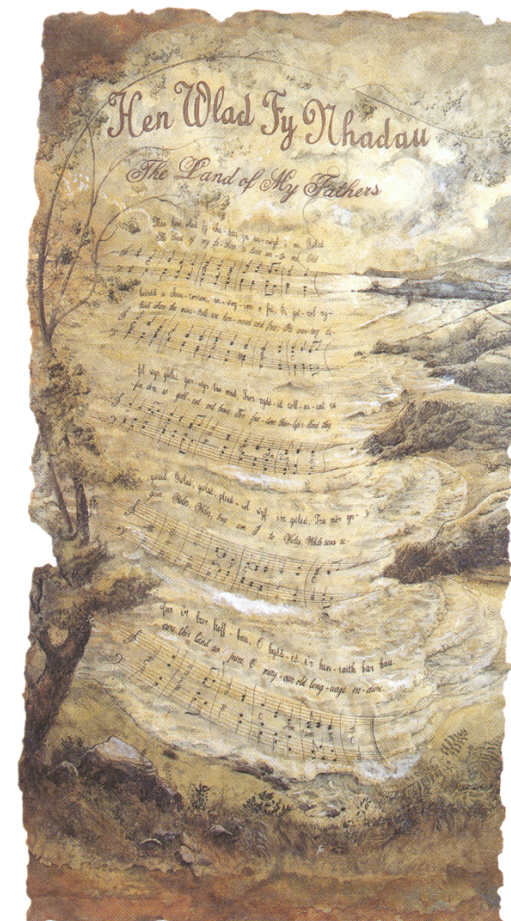 Hen Wlad Fy Nhadau
The Land of My Fathers
hen wlad fy nha-dau yn an-nwyl i mi, Gwlad
The land of my fa-thers is dear un-to me, Old
beirdd a chan-tor-ion, en-wog-ion o fri, Ei gwr-ol ry-
land where the min-strels are hon-oured and free; Its war-ring de-
fel wyr, gwlad-gar-wyr tra mad, Tros rydd-id coll-as-ant eu
fen-ders so gall-ant and brave, for free-dom their life-blood they
gwaed. Gwlad, gwlad, pleid-iol wyf i'm gwlad, Tra môr yn
gave. Wales, Wales, true am I to Wales, While seas se-
fur i'r bur hoff bau, O bydd-ed i'r hen-iaith bar-hau
cure this land so pure, O may our old lang-uage en-dure.